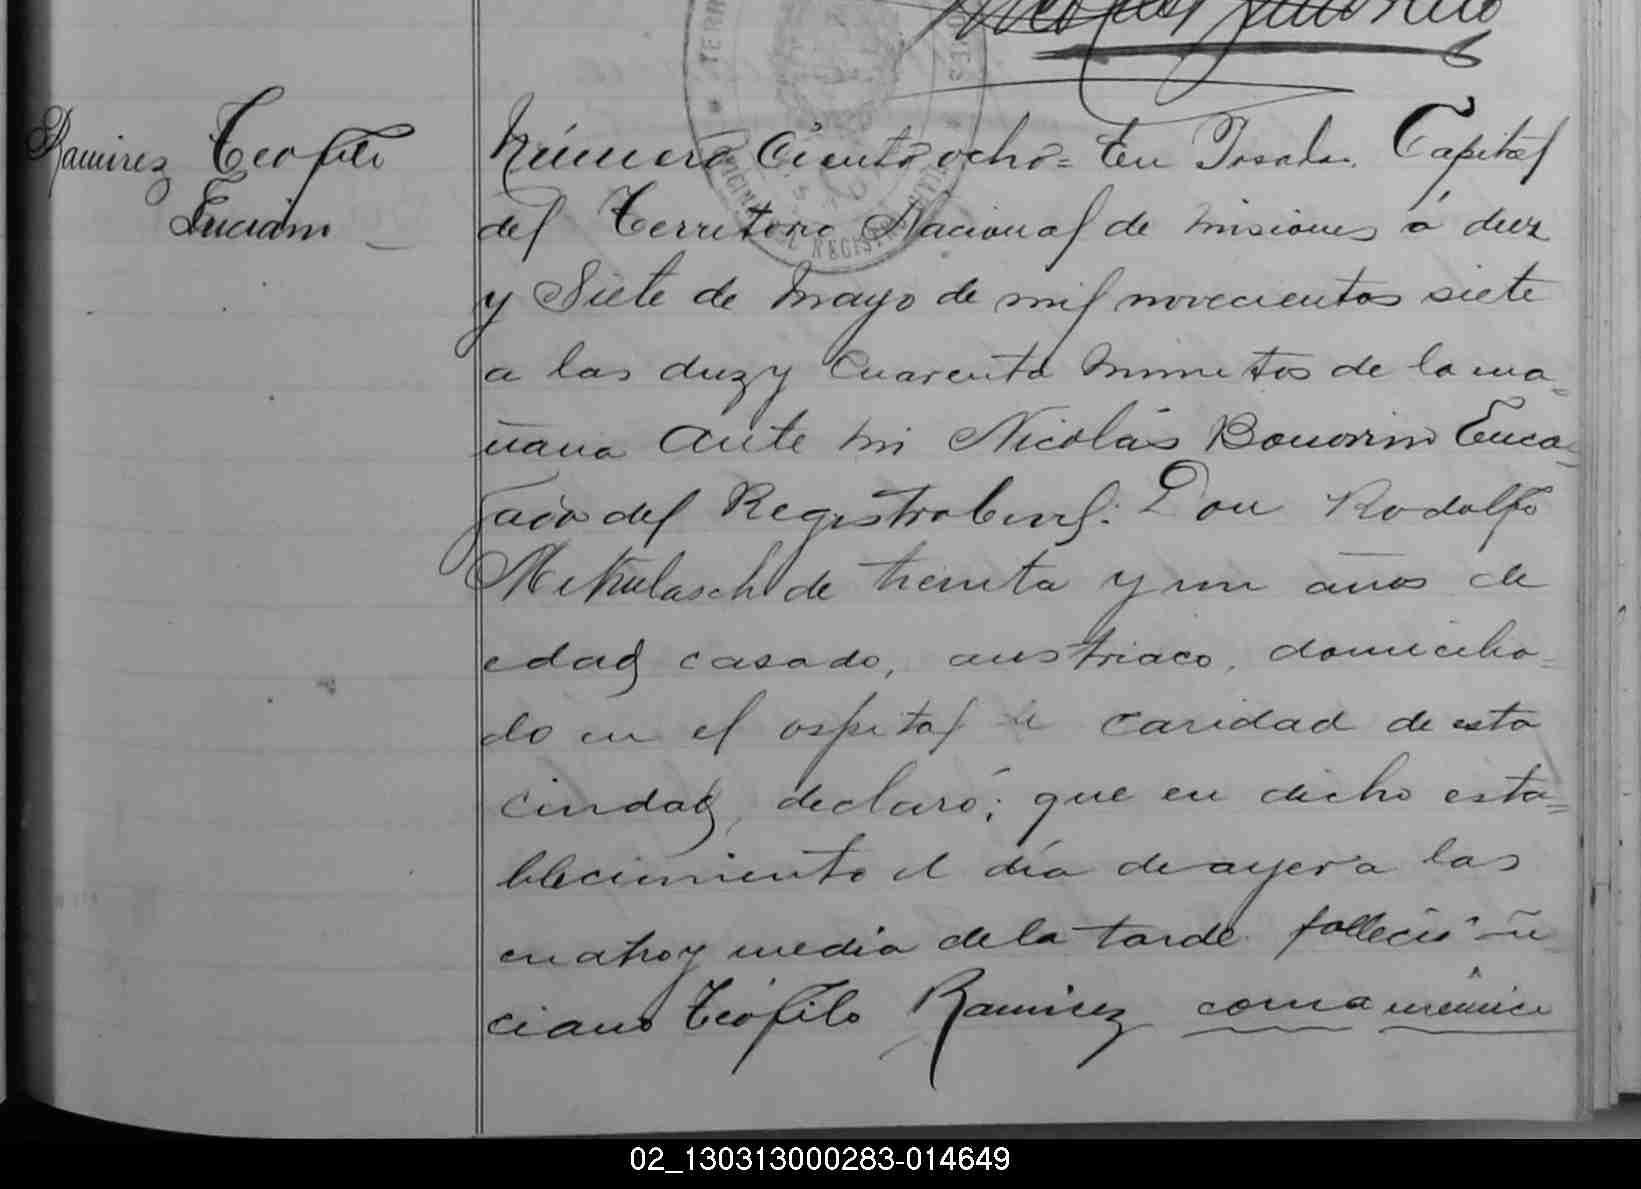 Ramirez Teofilo
Luciano
Número Ciento ocho = En Posadas Capital
del Territorio Nacional de Misiones á diez
y Siete de Mayo de mil novecientos siete
a las diez y Cuarenta minutos de la ma=
ñana Ante mi Nicolás Bonorino Enca=
gado del Registro Civil: Don Rodolfo
Mikulasch de treinta y un años de
edad casado, austriaco, domicilia=
do en el ospital de caridad de esta
ciudad, declaró; que en dicho esta=
blecimiento el día de ayer a las
cuatro y media de la tarde falleció
ciano Teófilo Ramirez coma urémico
02_130313000283-014649